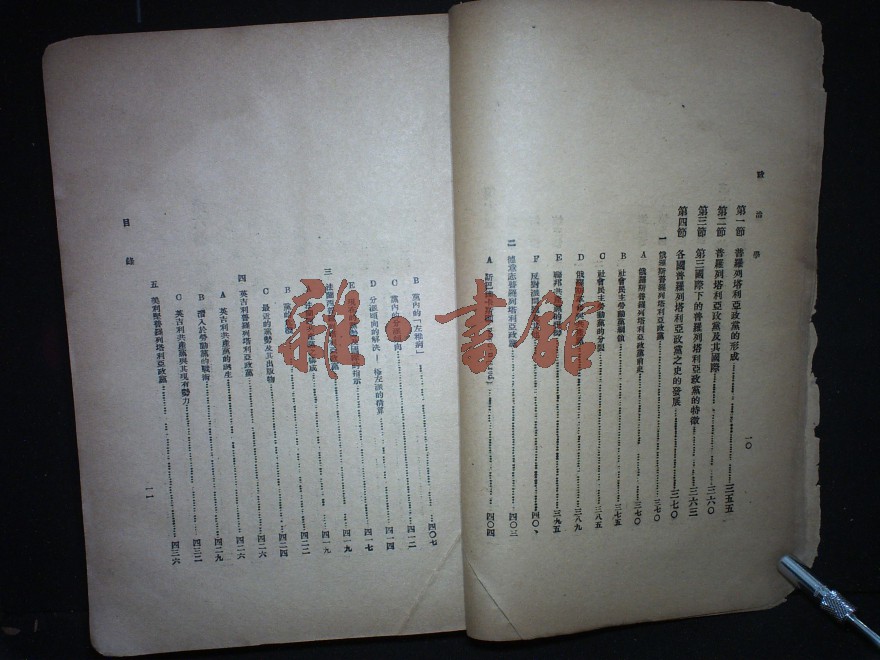 政治學
一〇
第一節 普羅列塔利亞政黨的形成……三五五
第二節 普羅列塔利亞政黨及其國際……三六〇
第三節 第三國際下的普羅列塔利亞政黨的特徵……三六二
第四節 各國普羅列塔利亞政黨之史的發展……三七〇
一 俄羅斯普羅列塔利亞政黨……三七〇
A 俄羅斯普羅列塔利亞政黨前史……三七〇
B 社會民主勞動黨綱領……三七五
C 社會民主勞動黨的分裂……三八五
D 俄羅斯……三八九
E 聯邦共……三九五
F 反對派
二 德意志普羅列塔利亞政黨……四〇三
A 斯巴……四〇四
B 黨內的「左稚病」……四〇七
C 黨內的分派傾向……四一二
D 分派傾向的解決——極左派的清算……四一四
E 的指示……四一七
三 法蘭西普羅列塔利亞政黨……四一九
B 黨的
C 最近的黨勢及其出版物
四 英吉利普羅列塔利亞政黨……四二六
A 英吉利共產黨的誕生……四二九
B 潛入於勞動黨的戰術……四三二
C 英吉利共產黨與其現有勢力
五 美利堅普羅列塔利亞政黨……四三六
目錄
一一
雜·書館